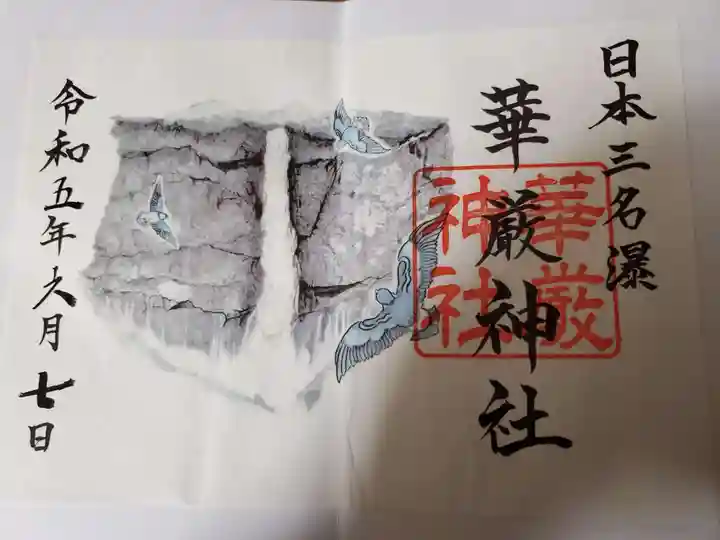 日本三名瀑
華厳神社
華厳
神社
令和五年六月七日